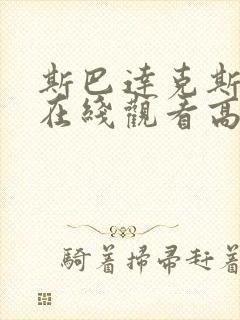 斯巴達克斯
在綫觀看高
騎着掃帚赶着